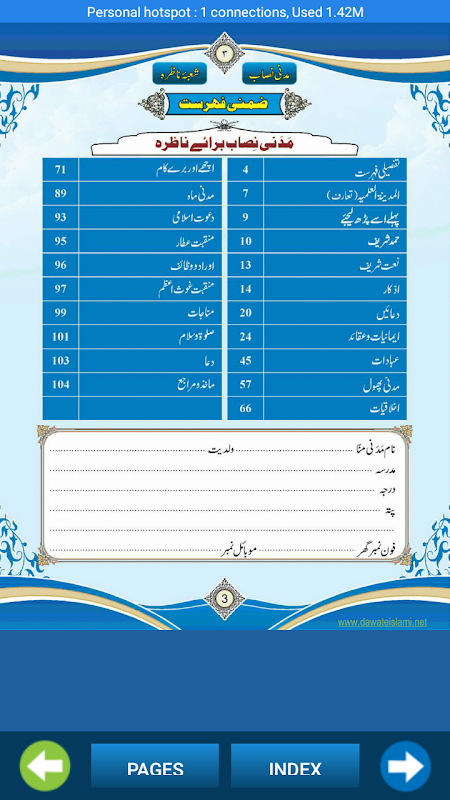 Personal hotspot : 1 connections, Used 1.42M
۳
مدنی نصاب
شعبۂ ناظرہ
ضمنی فہرست
مَدَنی نِصاب برائے ناظرہ
تفصیلی فہرست 4
المدینۃ العلمیہ (تعارف) 7
پہلے اسے پڑھ لیجئے 9
حمد شریف 10
نعت شریف 13
اذکار 14
دعائیں 20
ایمانیات و عقائد 24
عبادات 45
مدنی پھول 57
اخلاقیات 66
اچھے اور برے کام 71
مدنی ماہ 89
دعوت اسلامی 93
منقبت عطار 95
اوراد و وظائف 96
منقبت غوث اعظم 97
مناجات 99
صلوٰۃ وسلام 101
دعا 103
ماخذ و مراجع 104
نام مَدَنی منّا ........ ولدیت ........
مدرسہ ........
درجہ ........
پتہ ........
فون نمبر گھر ........ موبائل نمبر ........
3
www.dawateislami.net
PAGES
INDEX